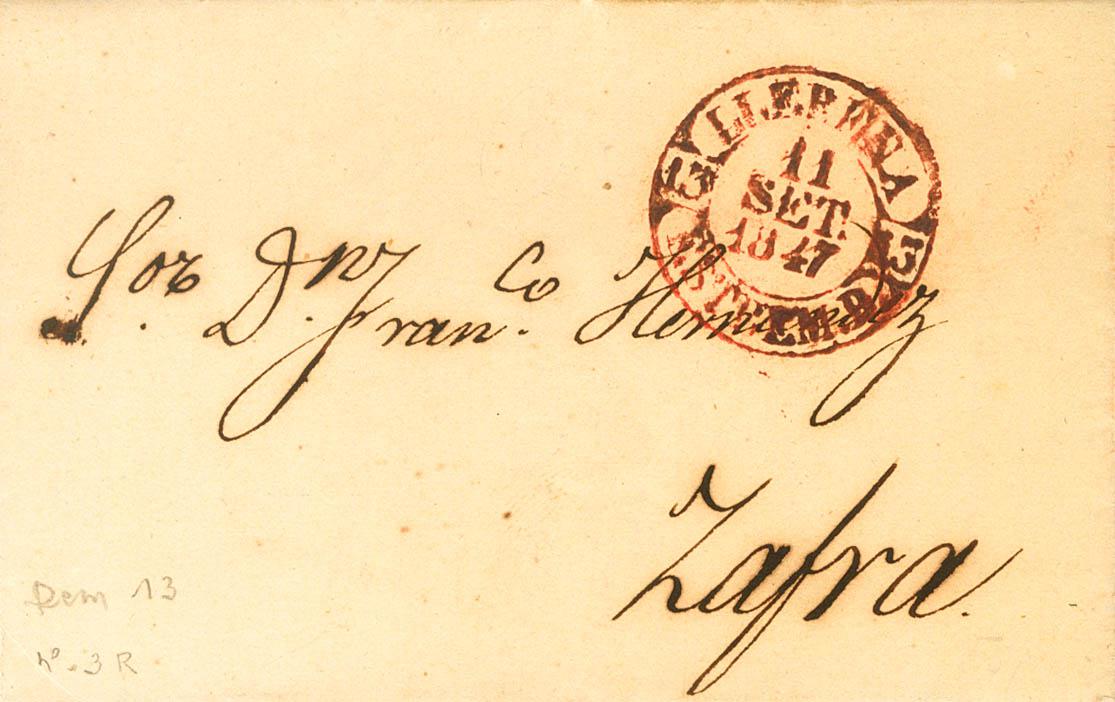 LLERENA
11
SET.
1847
13 13
ESTREMAD.
Sor. D.n Fran.co Hernandez
Zafra.
Dem 13
nº. 3 R